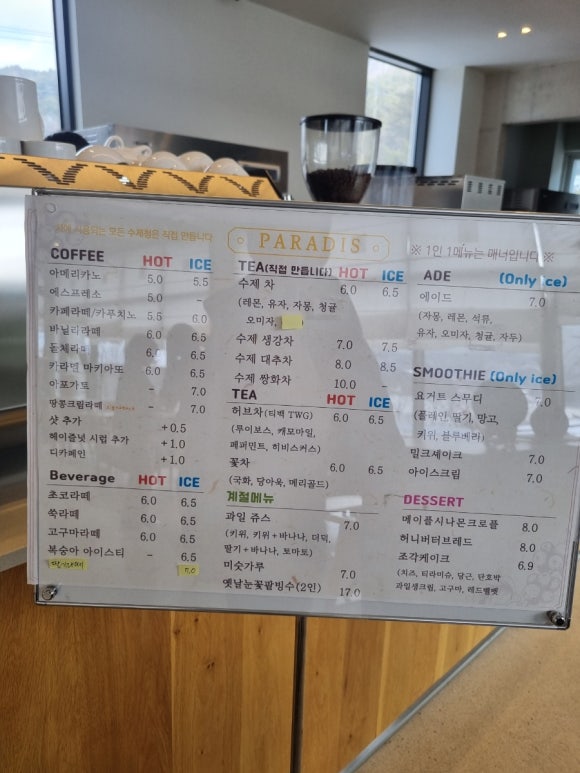 사용되는 모든 수제청은 직접 만듭니다
PARADIS
※ 1인 1메뉴는 매너입니다 ※
COFFEE HOT ICE
아메리카노 5.0 5.5
에스프레소 5.0 -
카페라떼/카푸치노 5.5 6.0
바닐라라떼 6.0 6.5
돌체라떼 6.0 6.5
카라멜 마키아또 6.0 6.5
아포가토 - 7.0
땅콩크림라떼 - 7.0
샷 추가 +0.5
헤이즐넛 시럽 추가 +1.0
디카페인 +1.0
Beverage HOT ICE
초코라떼 6.0 6.5
쑥라떼 6.0 6.5
고구마라떼 6.0 6.5
복숭아 아이스티 - 6.5
7.0
TEA(직접 만듭니다) HOT ICE
수제 차 6.0 6.5
(레몬, 유자, 자몽, 청귤
오미자,
수제 생강차 7.0 7.5
수제 대추차 8.0 8.5
수제 쌍화차 10.0 -
TEA HOT ICE
허브차(티백 TWG) 6.0 6.5
(루이보스, 캐모마일,
페퍼민트, 히비스커스)
꽃차 6.0 6.5
(국화, 당아욱, 메리골드)
계절메뉴
과일 쥬스 7.0
(키위, 키위+바나나, 더덕,
딸기+바나나, 토마토)
미숫가루 7.0
옛날눈꽃팥빙수(2인) 17.0
ADE (Only ice)
에이드 7.0
(자몽, 레몬, 석류,
유자, 오미자, 청귤, 자두)
SMOOTHIE (Only ice)
요거트 스무디 7.0
(플레인, 딸기, 망고,
키위, 블루베리)
밀크셰이크 7.0
아이스크림 7.0
DESSERT
메이플시나몬크로플 8.0
허니버터브레드 8.0
조각케이크 6.9
(치즈, 티라미슈, 당근, 단호박
과일생크림, 고구마, 레드벨벳